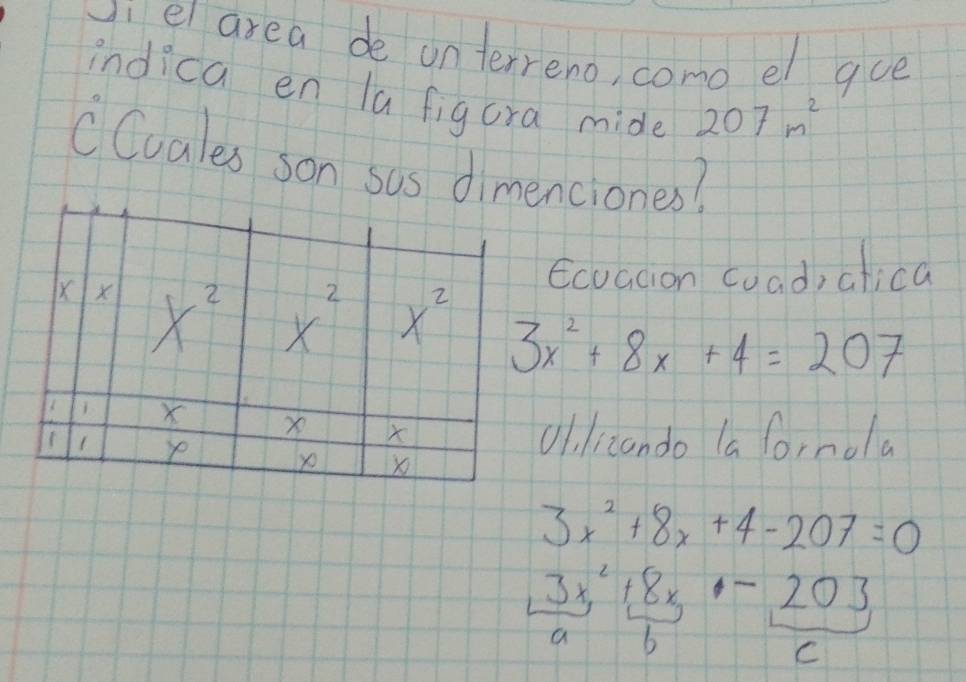 Si el area de un terreno, como el que
indica en la figura mide 207 m²
¿Cuales son sus dimenciones?
x x x² x² x²
1 1 x x x
1 1 x x x
Ecuacion cuadratica
3x² + 8x + 4 = 207
Utilizando la formula
3x² + 8x + 4 - 207 = 0
3x² + 8x - 203
a b c